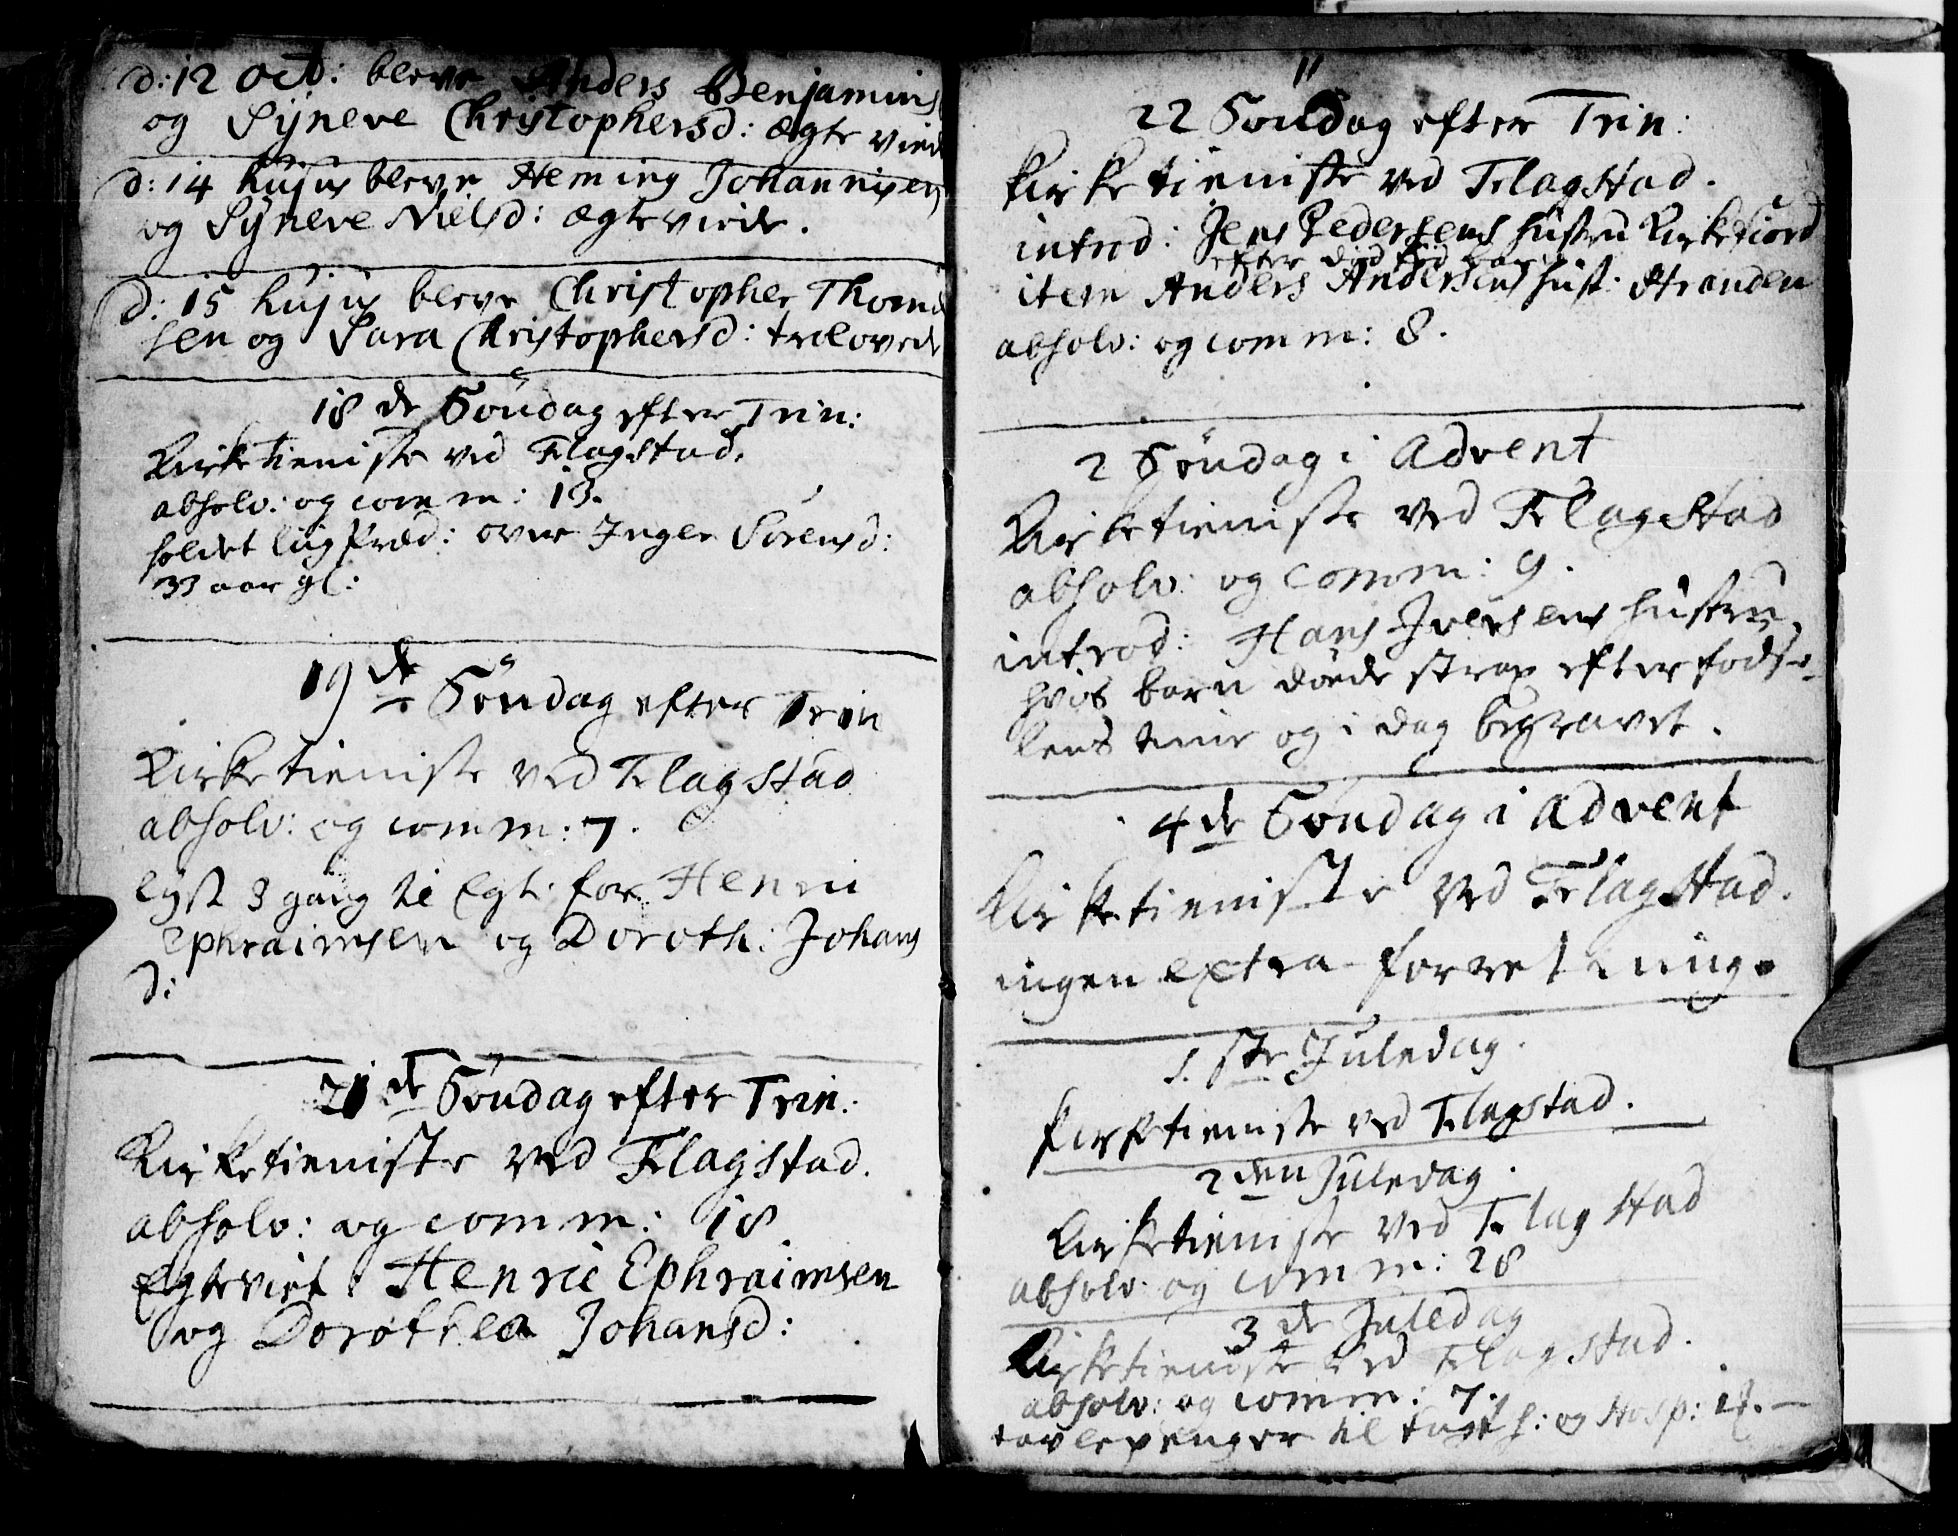 d: 12 Oct: bleve Anders Benjamins
og Syneve Christophersd: ægte viede
d: 14 hujus bleve Heming Johannisen
og Syneve Nielsd: ægteviede.
d: 15 hujus bleve Christopher Thom
sen og Sara Christophersd: trolovede
18 de Söndag efter Trin:
Kirketieniste ved Flagstad.
absolv: og comm: 13.
holdet liigPræd: over Inger Sörensd:
33 aar gl:
19 de Söndag efter Trin
Kirketieniste ved Flagstad
absolv: og comm: 7.
lyst 3 gang til Egt: for Henric
Ephraimsen og Doroth: Johans
d:
21 de Söndag efter Trin:
Kirketieniste ved Flagstad.
absolv: og comm: 18
Egteviet: Henric Ephraimsen
og Dorothea Johansd:
11
22 Söndag efter Trin:
Kirketieniste ved Flagstad.
introd: Jens Pedersens hustru Kirkefiord
efter död föd barn
item Anders Andersens hust: Stranden
absolv: og comm: 8.
2 Söndag i Advent
Kirketieniste ved Flagstad
absolv: og comm: 9.
introd: Hans Iversens hustru,
hvis barn döede strax efter födse-
lens time og i dag begravet.
4 de Söndag i Advent
Kirketieniste ved Flagstad.
ingen extra forretning.
1. ste Juledag.
Kirketieniste ved Flagstad.
2 den Juledag.
Kirketieniste ved Flagstad
absolv: og comm: 28
3 de Juledag
Kirketieniste ved Flagstad.
absolv: og comm: 7.
tavlepenger til h: og Hosp: